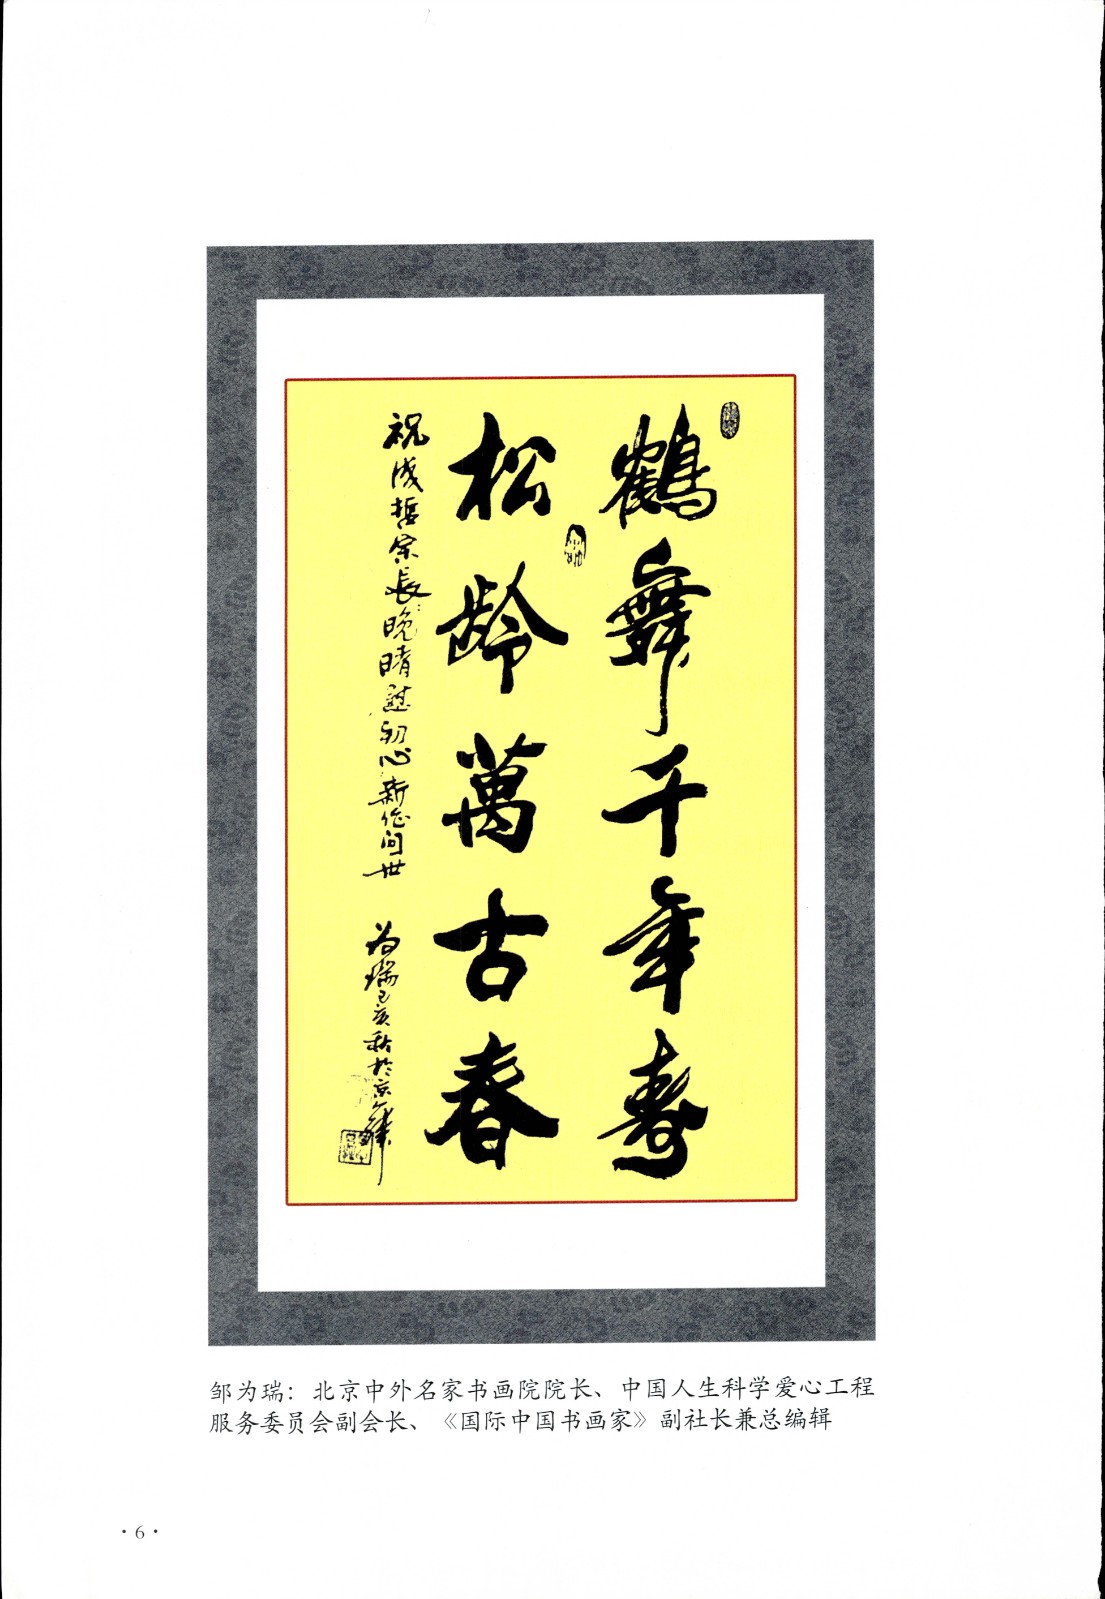 鶴舞千年壽
松齡萬古春
祝成哲宗長晚晴慰初心新作问世
为瑞己亥秋於京華
邹为瑞：北京中外名家书画院院长、中国人生科学爱心工程
服务委员会副会长、《国际中国书画家》副社长兼总编辑
·6·